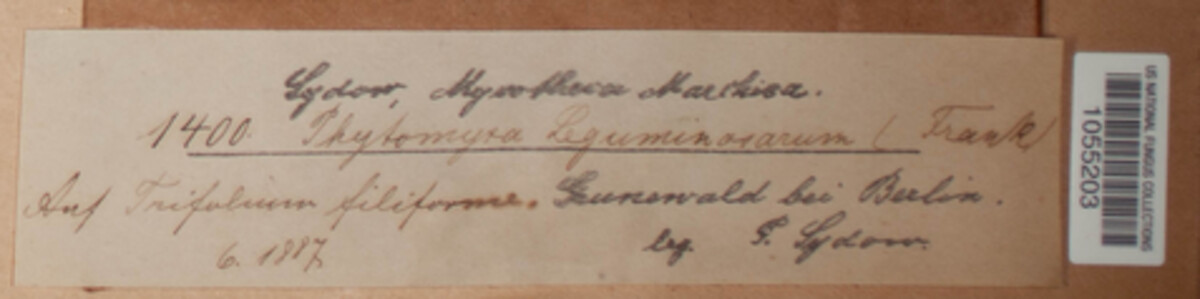 Sydow, Mycotheca Marchica.
1400 Phytomyxa Leguminosarum (Frank)
Auf Trifolium filiforme. Grunewald bei Berlin.
6. 1887
leg. P. Sydow.
US NATIONAL FUNGUS COLLECTIONS
1055203